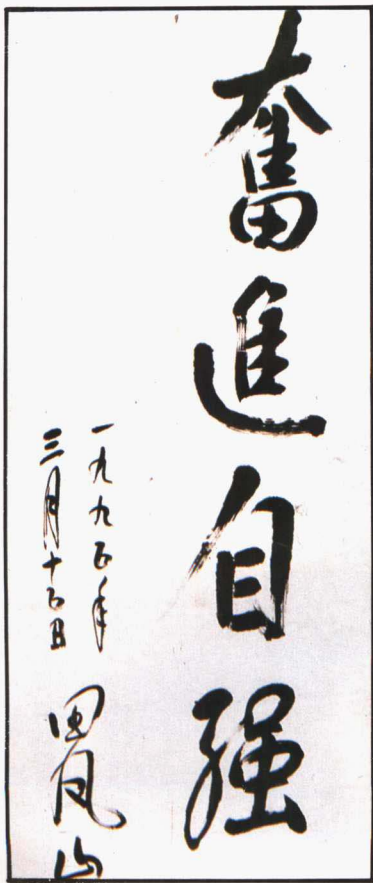 奮進自强
一九九五年
三月十五日
田凤山